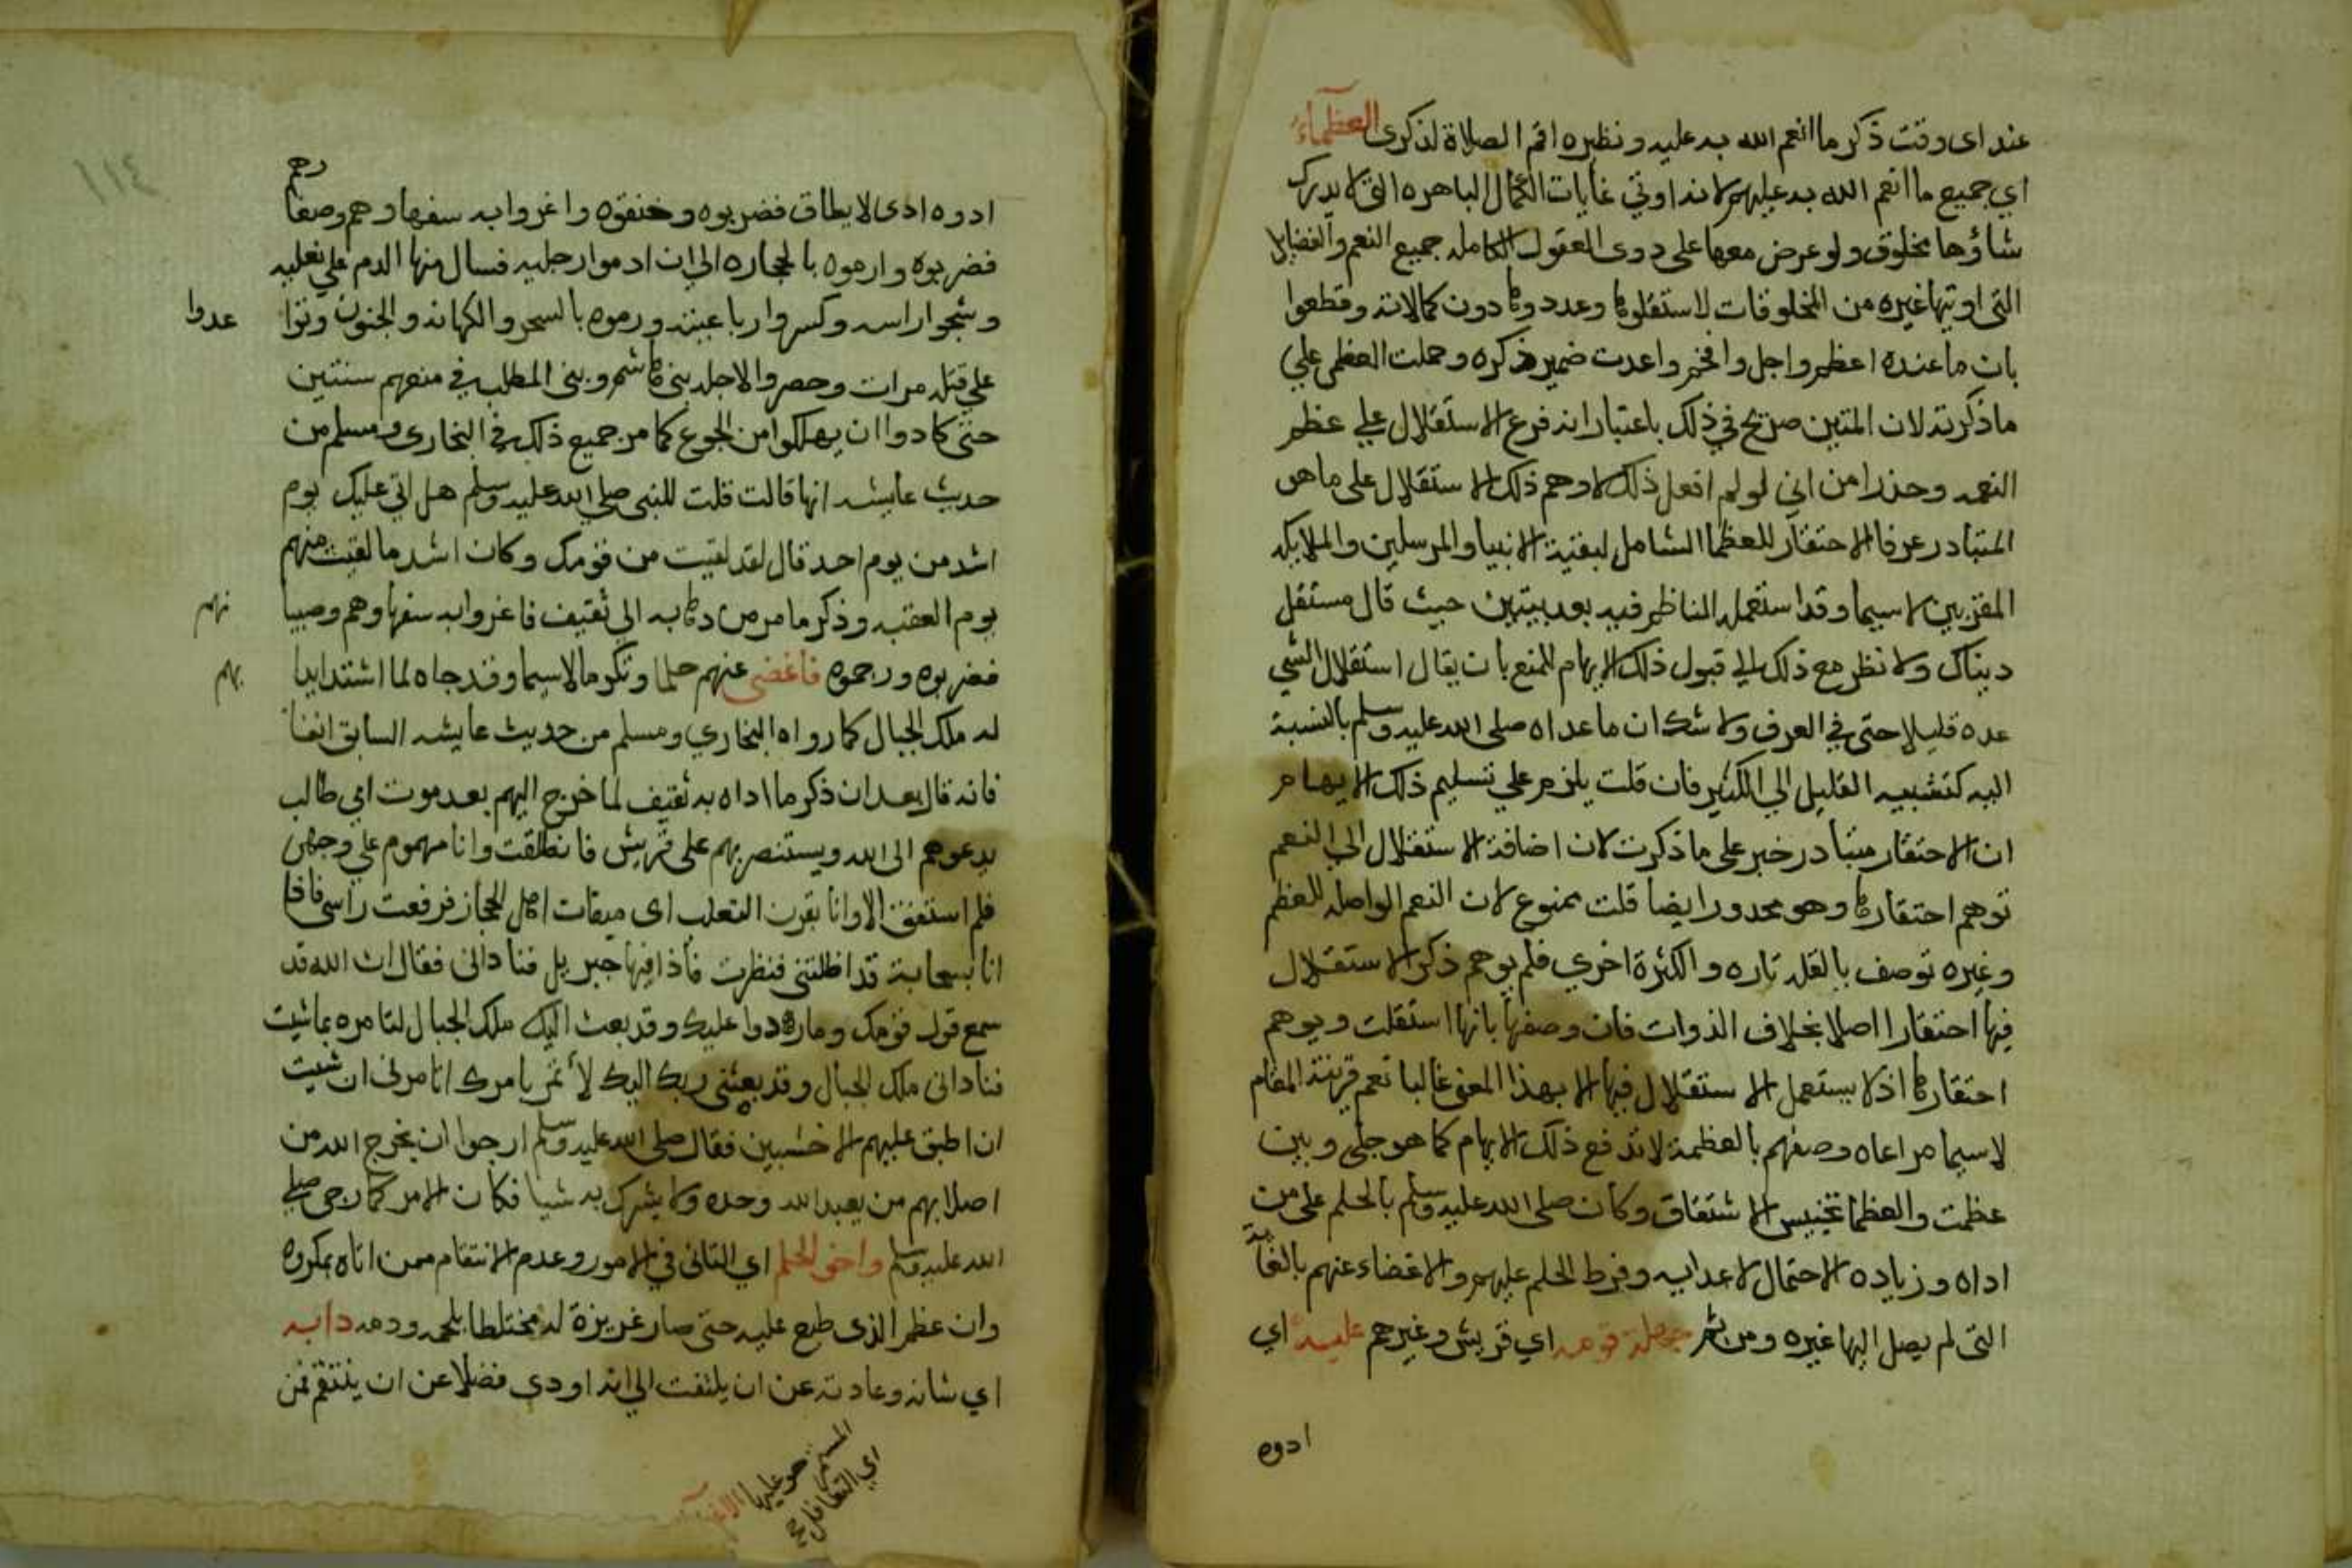 عند اى وقت ذكر ما انعم الله به عليه ونظيره اقم الصلاة لذكرى العظماء
اي جميع ما انعم الله به عليهم لانه اوتي غايات الكمال الباهره التى لا يدرك
شاؤها مخلوق ولو عرض معها على دوى العقول الكامله جميع النعم والفضايل
التى اوتيها غيره من المخلوقات لاستقلوها وعددوها دون كمالاته وقطعوا
بان ما عنده اعظم واجل وافخم واعدت ضمير ذكره وحملت العظمى علي
ما ذكرته لان المتين صريح في ذلك باعتبار انه فرع الاستقلال علي عظم
النعمه وحذرا من اني لو لم افعل ذلك لاوهم ذلك الاستقلال على ما هو
المتبادر عرفا الاحتقار للعظما الشامل لبقية الانبيا والمرسلين والملايكه
المقربين لاسيما وقد استعمله الناظم فيه بعد بيتين حيث قال مستقل
دنياك ولا نظر مع ذلك الي قبول ذلك الايهام للمنع بان يقال استقلال الشي
عده قليلا حتى في العرف ولا شك ان ما عداه صلى الله عليه وسلم بالنسبة
اليه كتشبيه القليل الي الكثير فان قلت يلزم علي تسليم ذلك الايهام
ان الاحتقار متبادر خبر على ما ذكرت لان اضافة الاستقلال الي النعم
توهم احتقارها وهو محدور ايضا قلت ممنوع لان النعم الواصله للعظم
وغيره توصف بالقله تاره والكثرة اخري فلم يوهم ذكر الاستقلال
فيها احتقارا اصلا بخلاف الذوات فان وصفها بانها استقلت ويوهم
احتقارها اذ لا يستعمل الاستقلال فيها الا بهذا المعنى غالبا نعم قرينة المقام
لاسيما مراعاه وصفهم بالعظمة لاندفع ذلك الايهام كما هو جلى وبين
عظمت والعظما تجنيس الاشتقاق وكان صلى الله عليه وسلم بالحلم على من
اداه وزياده الاحتمال لاعدايه وفرط الحلم عليهم والاغضاء عنهم بالغاية
التى لم يصل اليها غيره ومن ثم جهلت قومه اي قريش وغيرهم عليه اي
ادوه
١١٤
ادوه ادى لا يطاق فضربوه وخنقوه واغروا به سفهاوهم وصغا
رهم
فضربوه وارموه بالحجاره الي ان ادموا رجليه فسال منها الدم علي نعليه
وشجوا راسه وكسروا رباعيته ورموه بالسحر والكهانه والجنون وتوا
عدوا
علي قتله مرات وحصروا لاجله بنى هاشم وبنى المطلب في منعهم سنتين
حتى كادوا ان يهلكوا من الجوع كما مر جميع ذلك في البخارى ومسلم من
حديث عايشه انها قالت قلت للنبى صلي الله عليه وسلم هل اتي عليك يوم
اشد من يوم احد قال لقد لقيت من قومك وكان اشد ما لقيت منهم
يوم العقبه وذكر ما مر من دهابه الي ثقيف فاغروا به سفهاوهم وصبيا
نهم
فضربوه ورجموه فاغضى عنهم حلما وتكرما لاسيما وقد جاه لما اشتد ايدا
بهم
له ملك الجبال كما رواه البخاري ومسلم من حديث عايشه السابق انفا
فانه قال بعد ان ذكر ما اداه به ثقيف لما خرج اليهم بعد موت ابي طالب
يدعوهم الى الله ويستنصر بهم على قريش فانطلقت وانا مهموم علي وجهى
فلم استفق الا وانا بقرن الثعلب اى ميقات اهل الحجاز فرفعت راسى فاذا
انا بسحابة قد اظلتنى فنظرت فاذا فيها جبريل فنادانى فقال ان الله قد
سمع قول قومك وما ردوا عليك وقد بعث اليك ملك الجبال لتامره بما شيت
فنادانى ملك الجبال وقد بعثنى ربك اليك لأتمر بامرك انا مرنى ان شيت
ان اطبق عليهم الاخشبين فقال صلى الله عليه وسلم ارجوا ان يخرج الله من
اصلابهم من يعبد الله وحده ولا يشرك به شيا فكان الامر كما رجى صلى
الله عليه وسلم واخو الحلم اي التانى في الامور وعدم الانتقام ممن اتاه بمكروه
وان عظم الذى طبع عليه حتى صار غريزة له مختلطا بلحمه ودمه دابه
اي شانه وعادته عن ان يلتفت الي انه اودي فضلا عن ان ينتقم ممن
المستمر هو عليها الاغضاء
اي التغافل